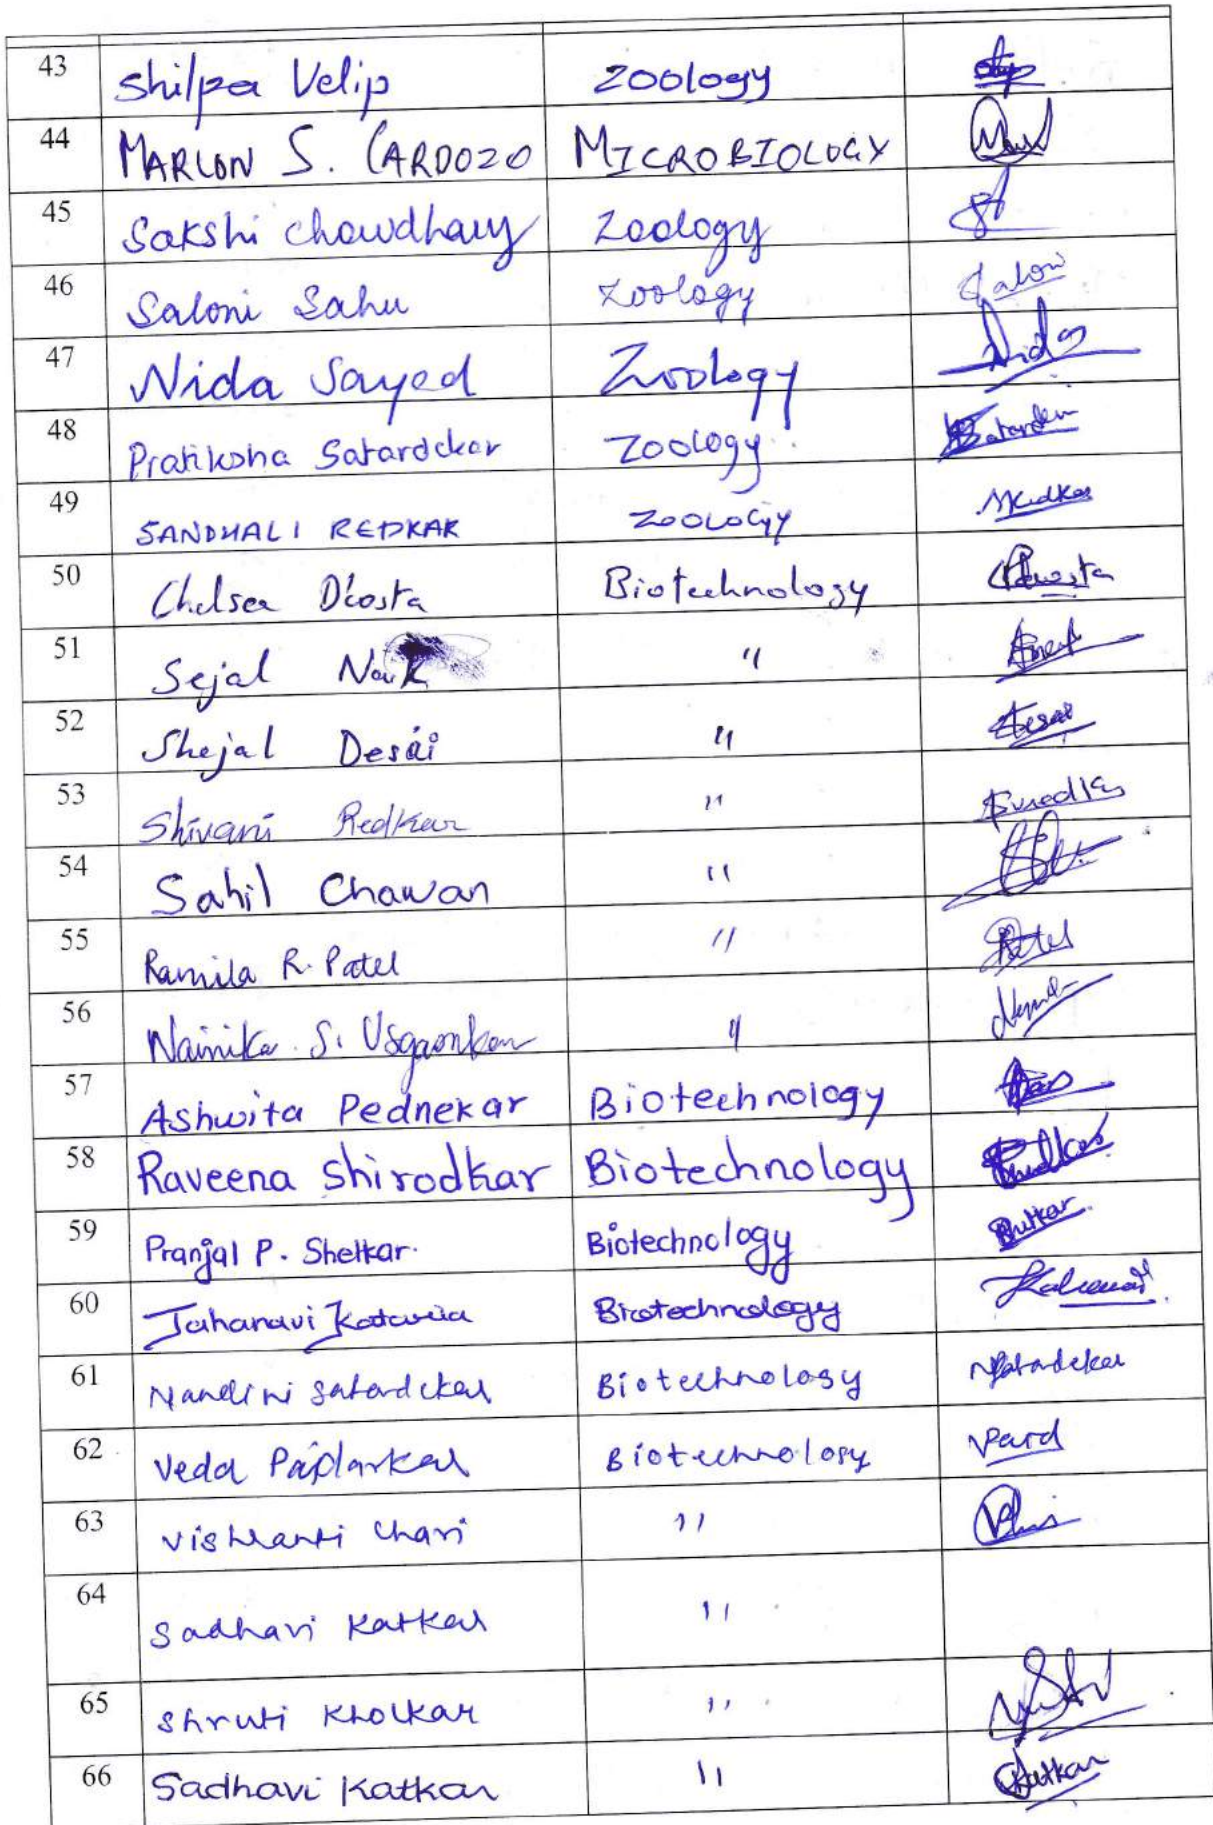 43 Shilpa Velip Zoology
44 MARLON S. CARDOZO MICROBIOLOGY
45 Sakshi Chowdhary Zoology
46 Saloni Sahu Zoology Saloni
47 Nida Sayed Zoology Nida
48 Pratiksha Satardekar Zoology
49 SANDHALI REDKAR ZOOLOGY
50 Chelsea D'costa Biotechnology
51 Sejal Naik "
52 Shejal Desai " Desai
53 Shivani Redkar "
54 Sahil Chawan "
55 Ramila R. Patel " Patel
56 Nainika S. Usgaonkar "
57 Ashwita Pednekar Biotechnology
58 Raveena Shirodkar Biotechnology
59 Pranjal P. Shetkar. Biotechnology
60 Jahanavi Kataria Biotechnology
61 Nandini Satardekar Biotechnology NSatardekar
62 Veda Padlarkar Biotechnology
63 Vishranti Chari "
64 Sadhavi Katkar "
65 Shruti Kholkar "
66 Sadhavi Katkar " Katkar